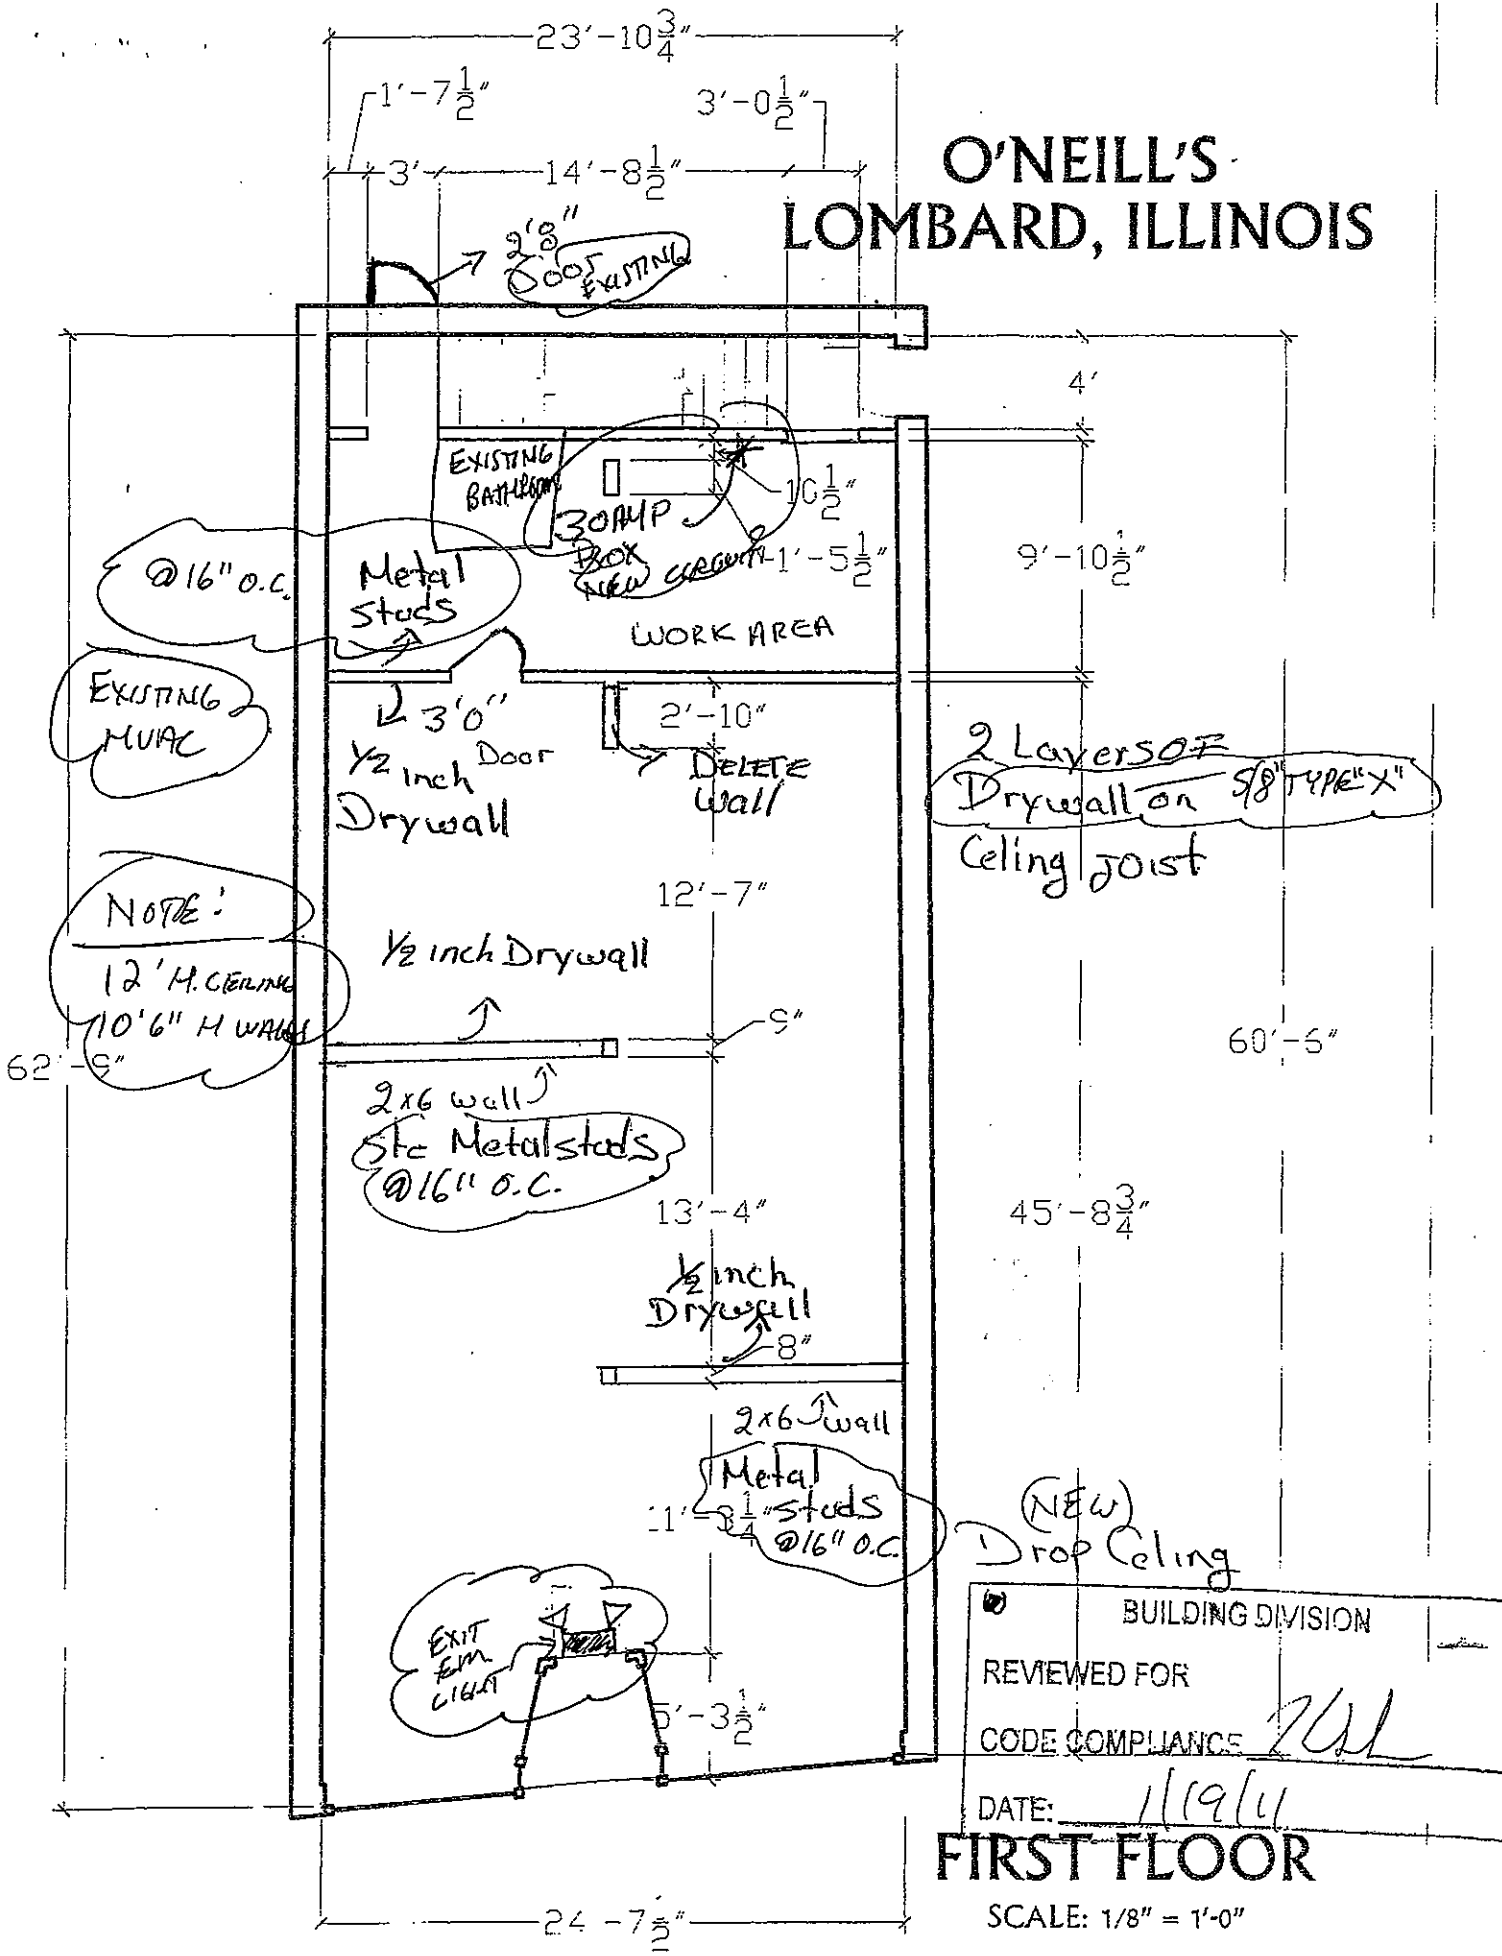 23'-10 3/4"
1'-7 1/2"
3'-0 1/2"
3'
14'-8 1/2"
O'NEILL'S
LOMBARD, ILLINOIS
2'8"
Door
EXISTING
4'
EXISTING
BATHROOM
10 1/2"
30AMP
BOX
NEW CIRCUIT
1'-5 1/2"
9'-10 1/2"
@16" O.C.
Metal
Studs
WORK AREA
EXISTING
HVAC
3'0"
Door
1/2 inch
Drywall
2'-10"
DELETE
Wall
2 Layers OF
Drywall on 5/8" TYPE "X"
Celing JOIST
12'-7"
NOTE:
12' H. CEILING
10'6" H WALLS
1/2 inch Drywall
9"
62'-9"
60'-6"
2x6 wall
Metal studs
@16" O.C.
13'-4"
45'-8 3/4"
1/2 inch
Drywall
8"
2x6 wall
Metal
Studs
@16" O.C.
11'-3 1/4"
(NEW)
Drop Celing
EXIT
EM
LIGHT
5'-3 1/2"
BUILDING DIVISION
REVIEWED FOR
CODE COMPLIANCE
DATE: 1/19/11
FIRST FLOOR
SCALE: 1/8" = 1'-0"
24'-7 1/2"